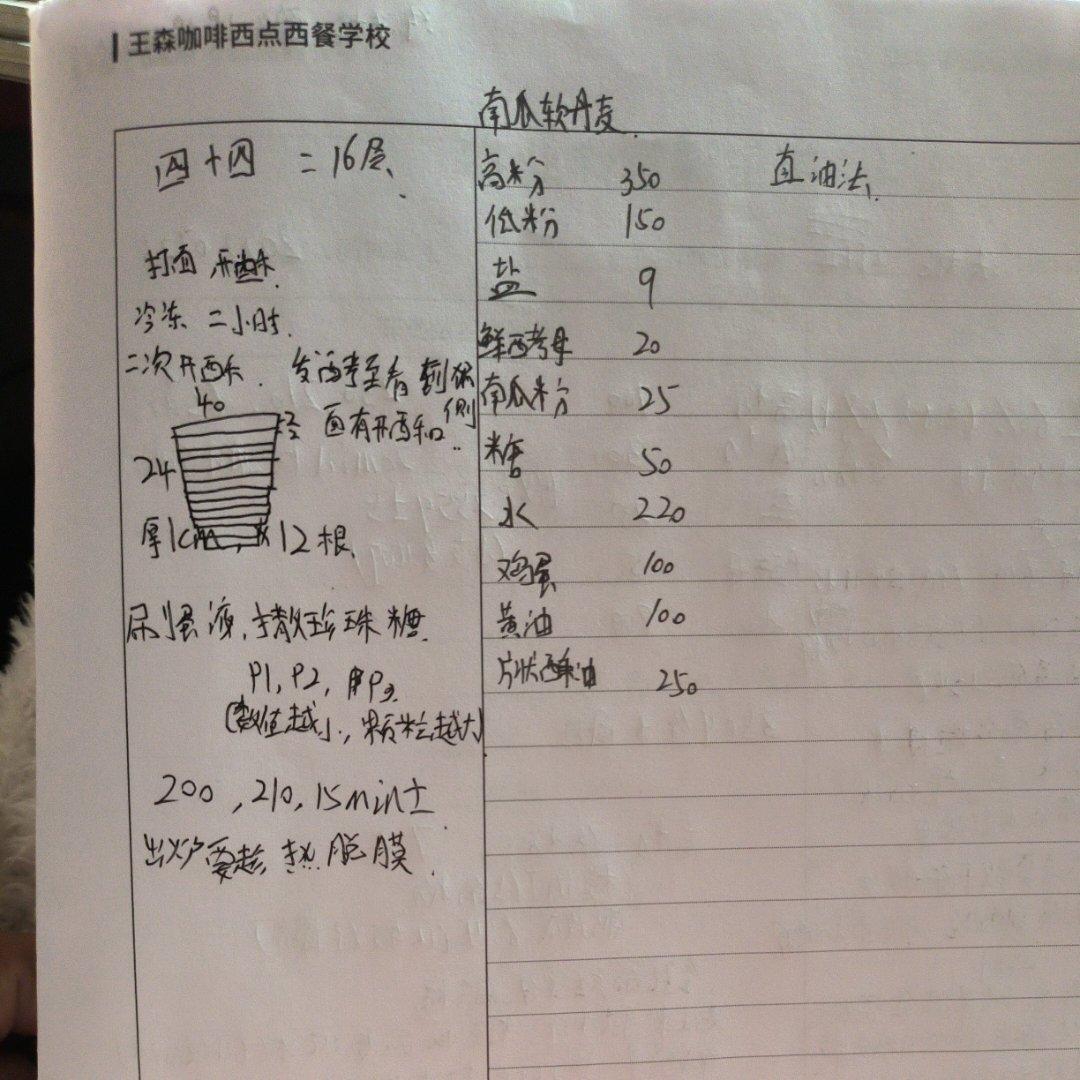 王森咖啡西点西餐学校
南瓜软丹麦
四+四 =16层
打面,开酥
冷冻 二小时
二次开酥. 发酵至看到保
面有开酥和 侧
40
24
厚1cm, 12根
尿刂蛋液,撒珍珠糖
P1, P2, P3
(数值越小,颗粒越大)
200, 210, 15min±
出炉要趁热脱膜
高粉 350 直油法
低粉 150
盐 9
鲜酵母 20
南瓜粉 25
糖 50
水 220
鸡蛋 100
黄油 100
片状酥油 250